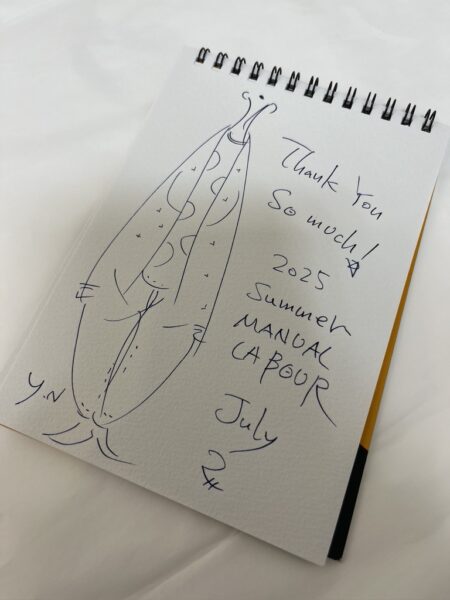 Thank You
So much!
2025
Summer
MANUAL
LABOUR
July
Y.N